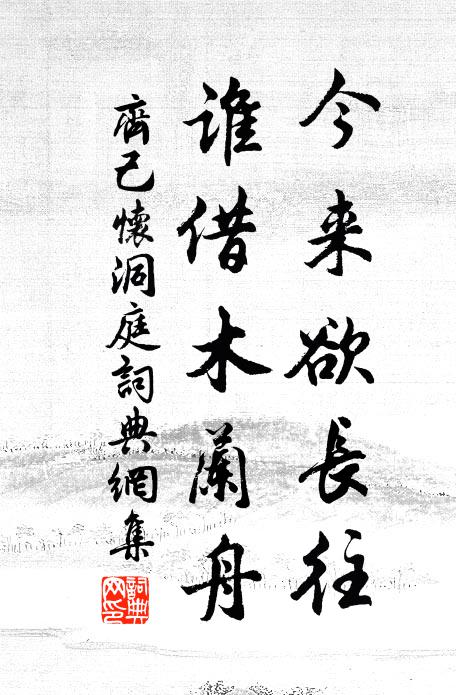 今来欲長往
誰借木蘭舟
齊己懷洞庭詞典網集
詞典網印